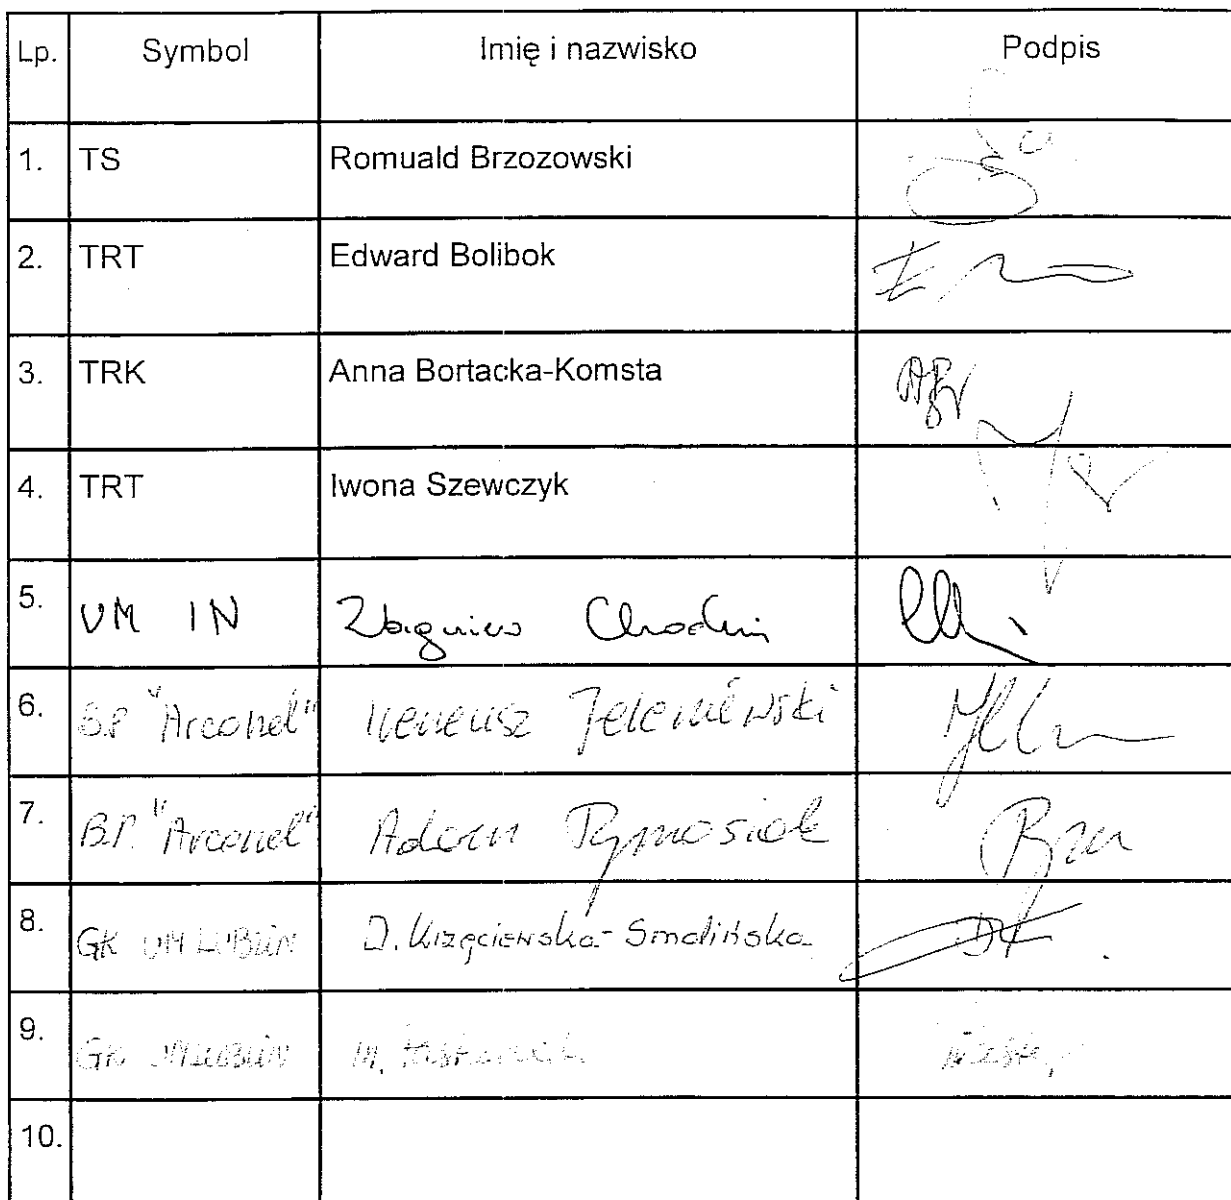 Lp. Symbol Imię i nazwisko Podpis
1. TS Romuald Brzozowski
2. TRT Edward Bolibok
3. TRK Anna Bortacka-Komsta
4. TRT Iwona Szewczyk
5. UM IN Zbigniew
6. B.P. "Arconel" Ireneusz
7. B.P. "Arconel" Adam
8. GK UM LUBLIN D. Krzęciewska-Smolińska
9. GK UM LUBLIN M.
10.